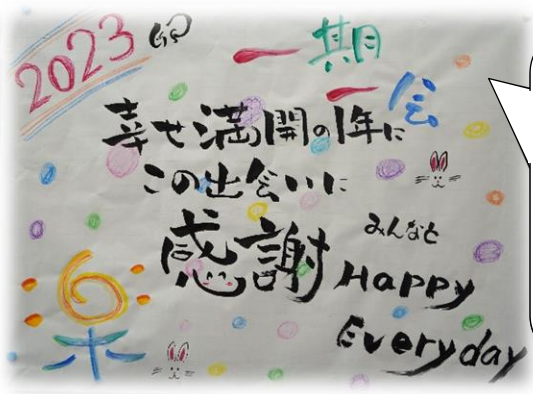 2023 卯
一期一会
幸せ満開の1年に
この出会いに
感謝
みんなと
Happy
Everyday
楽